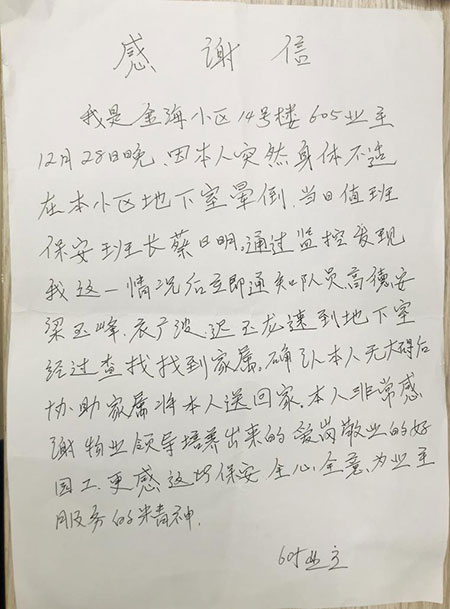 感谢信
我是金海小区14号楼605业主
12月28日晚、因本人突然身体不适
在本小区地下室晕倒、当日值班
保安班长蔡日明。通过监控发现
我这一情况后立即通知队员、高德安
梁玉峰、衣广波、迟玉龙速到地下室
经过查找找到家属。确认本人无大碍后
协助家属将本人送回家、本人非常感
谢物业领导培养出来的爱岗敬业的好
员工、更感这些保安全心全意、为业主
服务的精神.
605业主